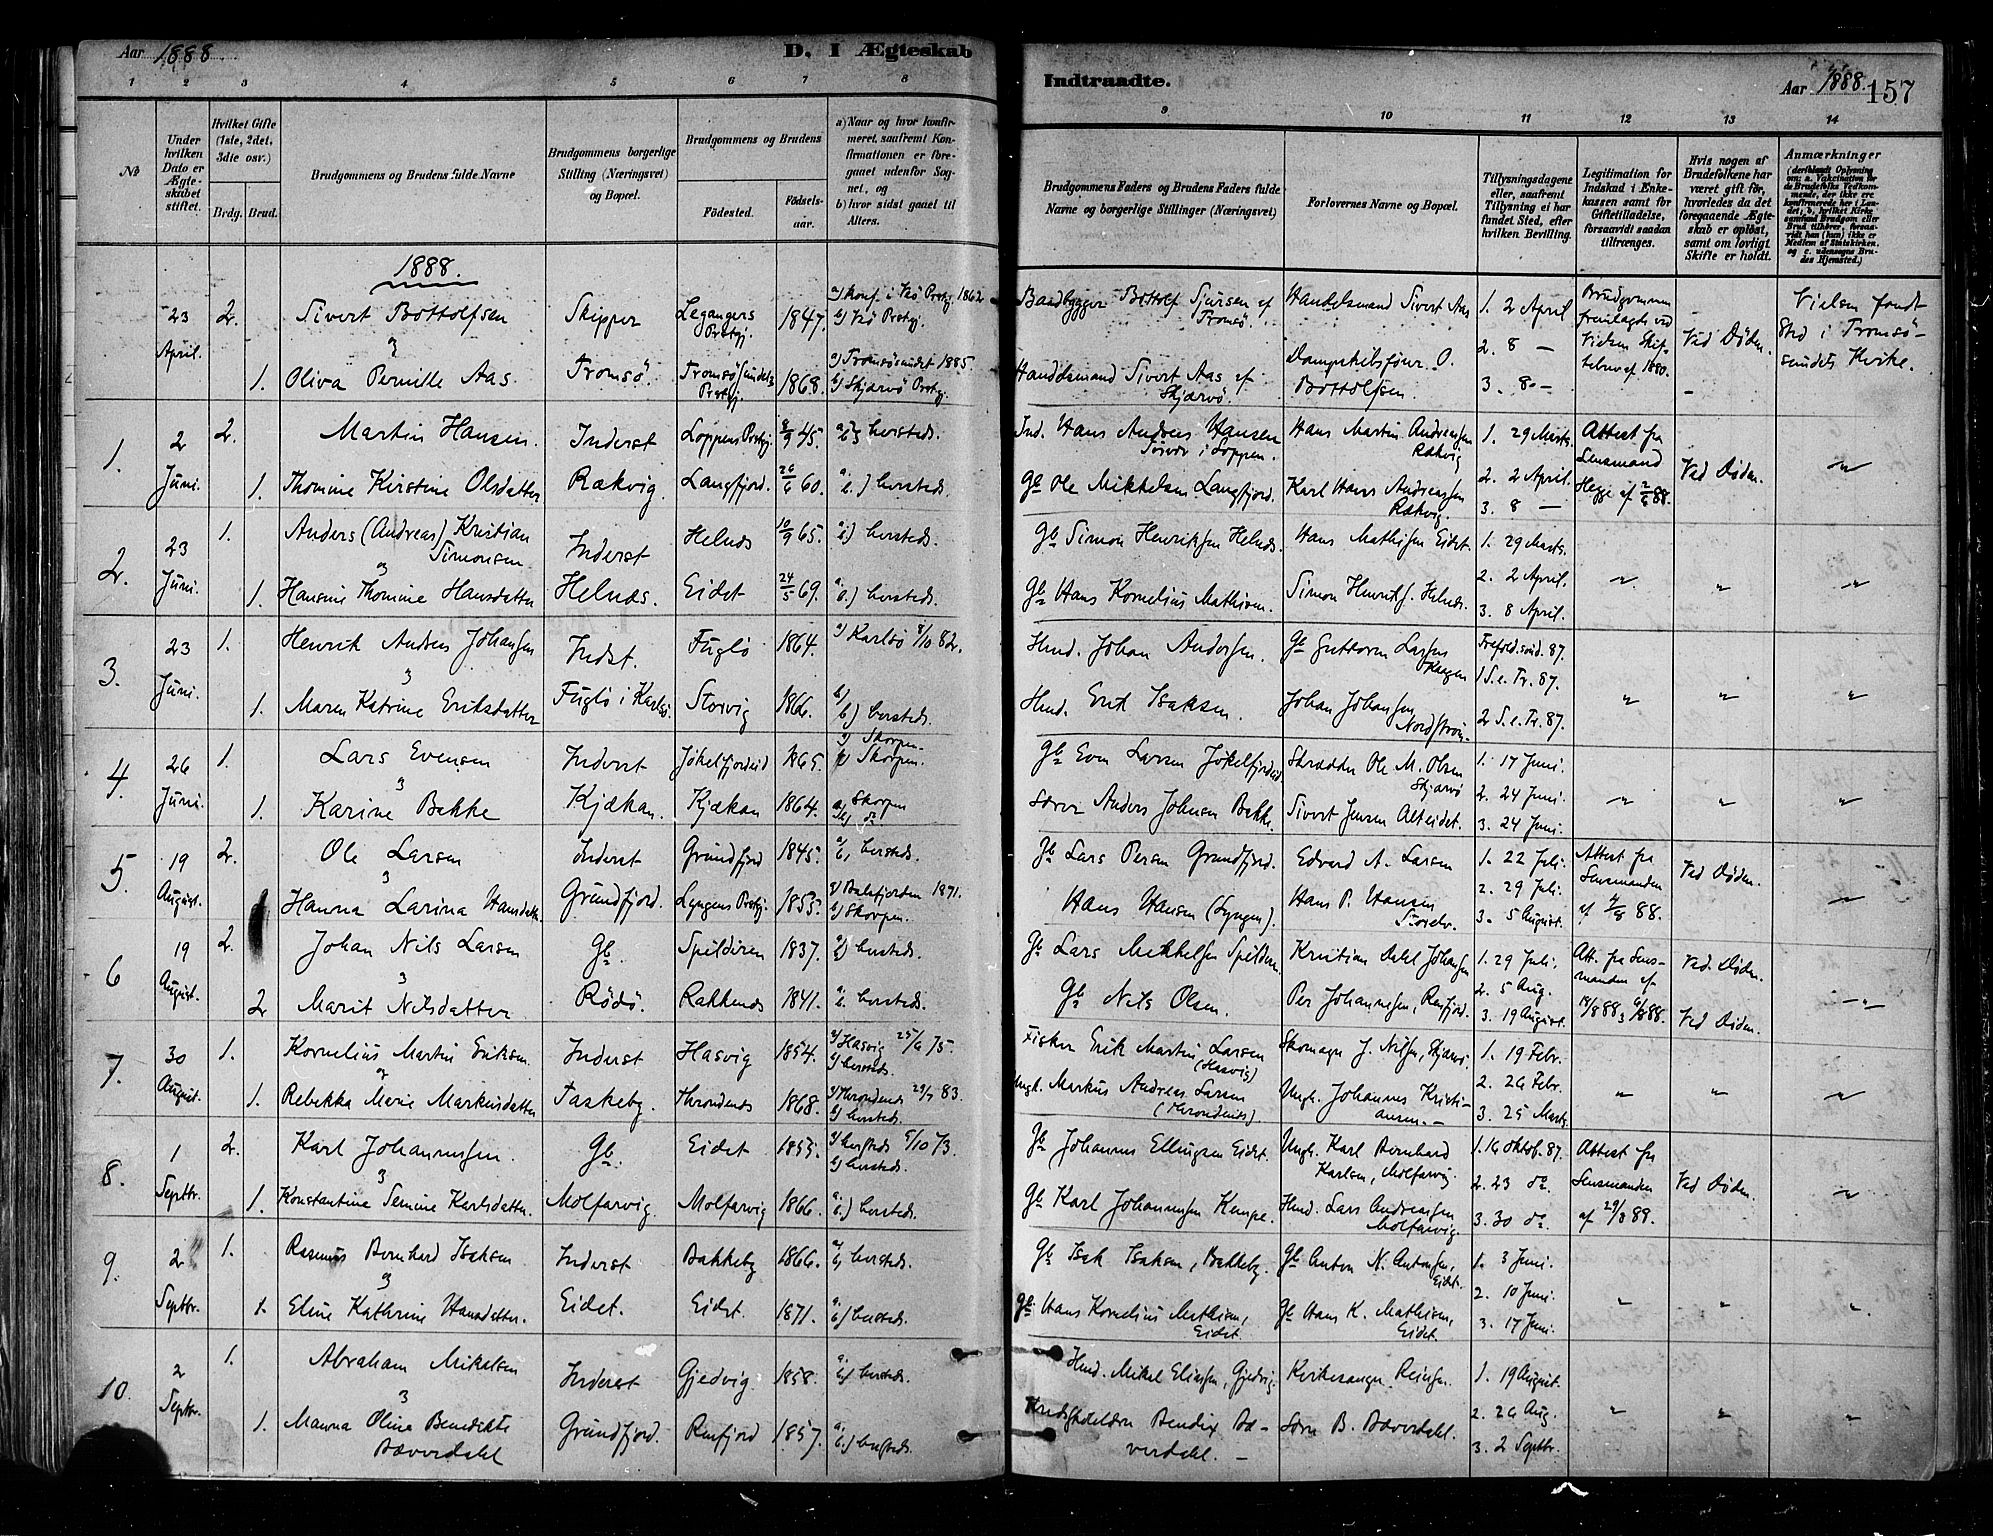 Aar 1888.
D. I Ægteskab
Indtraadte.
Aar 1888. 157
1 2 3 4 5 6 7 8
9 10 11 12 13 14
№
Under hvilken Dato er Ægteskabet stiftet.
Hvilket Gifte (1ste, 2det, 3die osv.)
Brdg. Brud.
Brudgommens og Brudens fulde Navne
Brudgommens borgerlige Stilling (Næringsvei) og Bopæl.
Brudgommens og Brudens
Fødested.
Fødselsaar.
a) Naar og hvor konfirmeret, saafremt Konfirmationen er foregaaet udenfor Sognet, og
b) hvor sidst gaaet til Alters.
Brudgommens Faders og Brudens Faders fulde Navne og borgerlige Stillinger (Næringsvei)
Forlovernes Navne og Bopæl.
Tillysningsdagene eller, saafremt Tillysning ei har fundet Sted, efter hvilken Bevilling.
Legitimation for Indskud i Enkekassen samt for Giftetilladelse, forsaavidt saadan tiltrænges.
Hvis nogen af Brudefolkene har været gift før, hvorledes da det foregaaende Ægteskab er opløst, samt om lovligt Skifte er holdt.
Anmærkninger
1888.
23 April. 2. Sivert Bottolfsen Skipper Legangers Prstgj. 1847. a) Konf. i Vø Prstgj. 1862 b) Vø Prstgj.
Baadbygger Bottolf Sjursen af Tromsø. Handelsmand Sivert Aas 1. 2 April
& 1. Oliva Pernille Aas. Tromsø. Tromsøsundets Prstgj. 1868. a) Tromsøsundet 1885 b) Skjærvø Prstgj.
Handelsmand Sivert Aas af Skjærvø. Dampskibsfører O. Bottolfsen. 2. 8 — 3. 8 —
Ved Døden. Vielsen fandt Sted i Tromsøsundets Kirke.
1. 2 Juni. 2. Martin Hansen. Inderst Loppens Prstgj. 45. hersteds.
Ind. Hans Andreas Hansen Sørvær i Loppen. Hans Martin Andreassen Rækvig 1. 29 Marts.
1. Thomine Kirstine Olsdatter Rækvig. Langfjord. 26/6 60. hersteds.
Gb. Ole Mikkelsen Langfjord. Karl Hans Andreassen Rækvig. 2. 2 April. 3. 8 —
Attest fra Lensmand Hegge af 2/6 88. Ved Døden. "
2. 23 Juni. 1. Anders (Andreas) Kristian Simonsen Inderst Helnæs 10/9 65. hersteds.
Gb. Simon Henriksen Helnæs. Hans Mathisen Eidet. 1. 29 Marts.
& 1. Hansine Thomine Hansdatter Helnæs. Eidet 24/5 69. hersteds.
Gb. Hans Kornelius Mathisen. Simon Henriks. Helnæs. 2. 2 April. 3. 8 April. " " "
3. 23 Juni. 1. Henrik Andreas Johansen Indst. Fuglø 1864. a) Karlsø 8/10 82.
Husd. Johan Andersen. Gb Guttorm Larsen 1 S. e. Tr. 87.
& 1. Maren Katrine Eriksdatter Fuglø i Karlsø. Storvig 1866. b) hersteds.
Husd. Erik Isaksen. Johan Johansen Nordstrøm. 2 S. e. Tr. 87. " " "
4. 26 Juni. 1. Lars Evensen Inderst Jøkelfjordeid 1865. a) Skorpen. b) Skorpen.
Gb. Even Larsen Jøkelfjordeid Skrædder Ole M. Olsen Skjærvø 1. 17 Juni.
& 1. Karine Bække Kjækan. Kjækan 1864. a) Skorpen b) do
Anders Johnsen Bække. Sivert Jensen Alteidet. 2. 24 Juni. 3. 24 Juni. " " "
5. 19 August. 2. Ole Larsen Inderst Grundfjord 1845. hersteds.
Gb. Lars Persen Grundfjord. Edvard A. Larsen 1. 22 Juli.
& Hanna Larina Hansdatter Grundfjord. Lyngens Prstgj. 1855. a) Balsfjorden 1871. b) Skorpen.
Hans Hansen (Lyngen). Hans P. Hansen 2. 29 Juli. 3. 5 August.
Attest fra Lensmanden af 4/8 88. Ved Døden. "
6 19 August. 2. Johan Nils Larsen Gb. Spildren 1837. hersteds.
Gb. Lars Mikkelsen Spildren. Kristian Dahl Johansen 1. 29 Juli.
& 2 Marit Nilsdatter Rødø. Rakkenæs 1841. hersteds.
Gb. Nils Olsen. Per Johannesen, Reinfjord. 2. 5 Aug. 3. 19 August.
Att. fra Lensmanden af 14/8 88 & 9/8 88. Ved Døden. Ved Døden. "
7. 30 August. 1. Kornelius Martin Eriksen Inderst Hasvig 1854. a) Hasvig 25/6 75. b) hersteds.
Fisker Erik Martin Larsen (Hasvig) Skomager J. Nilsen, Skjærvø. 1. 19 Febr.
& 1. Rebekka Marie Markusdatter Taskeby. Throndenæs 1868. a) Throndenæs 29/7 83. b) hersteds.
Ungk. Markus Andreas Larsen (Throndenæs) Ungk. Johannes Kristiansen. 2. 26 Febr. 3. 25 Marts " " "
8. 1 Septbr. 2. Karl Johannesen. Gb. Eidet 1855. a) hersteds 5/10 73. b) hersteds.
Gb. Johannes Ellingsen Eidet. Ungk. Karl Bernhard Karlsen, Molfarvig. 1. 16 Oktob. 87.
& 1. Konstantine Semine Karlsdatter. Molfarvig. Molfarvig 1866. hersteds.
Gb. Karl Johannesen Kempe. Husd. Lars Andreassen Molfarvig. 2. 23 do. 3. 30 do.
Attest fra Lensmanden af 29/8 88. Ved Døden. "
9. 2 Septbr. 1. Rasmus Bernhard Isaksen Inderst Bakkeby 1866. hersteds.
Gb. Isak Isaksen, Bakkeby. Gb. Anton N. Antonsen, Eidet. 1. 3 Juni.
& 1. Eline Kathrine Hansdatter. Eidet. Eidet. 1871. hersteds.
Gb. Hans Kornelius Mathisen, Eidet. Gb. Hans K. Mathisen, Eidet. 2. 10 Juni. 3. 17 Juni. " " "
10. 2 Septbr. 1. Abraham Mikalsen Inderst Gjedvig 1858. hersteds.
Husd. Mikal Elinsen, Gjedvig. Kirkesanger Reiersen. 1. 19 August.
& 1. Manna Oline Benedikte Bæverdahl Grundfjord. Reinfjord 1857. hersteds.
Bendix Bæverdahl. — Søren B. Bæverdahl. 2. 26 Aug. 3. 2 Septbr. " " "